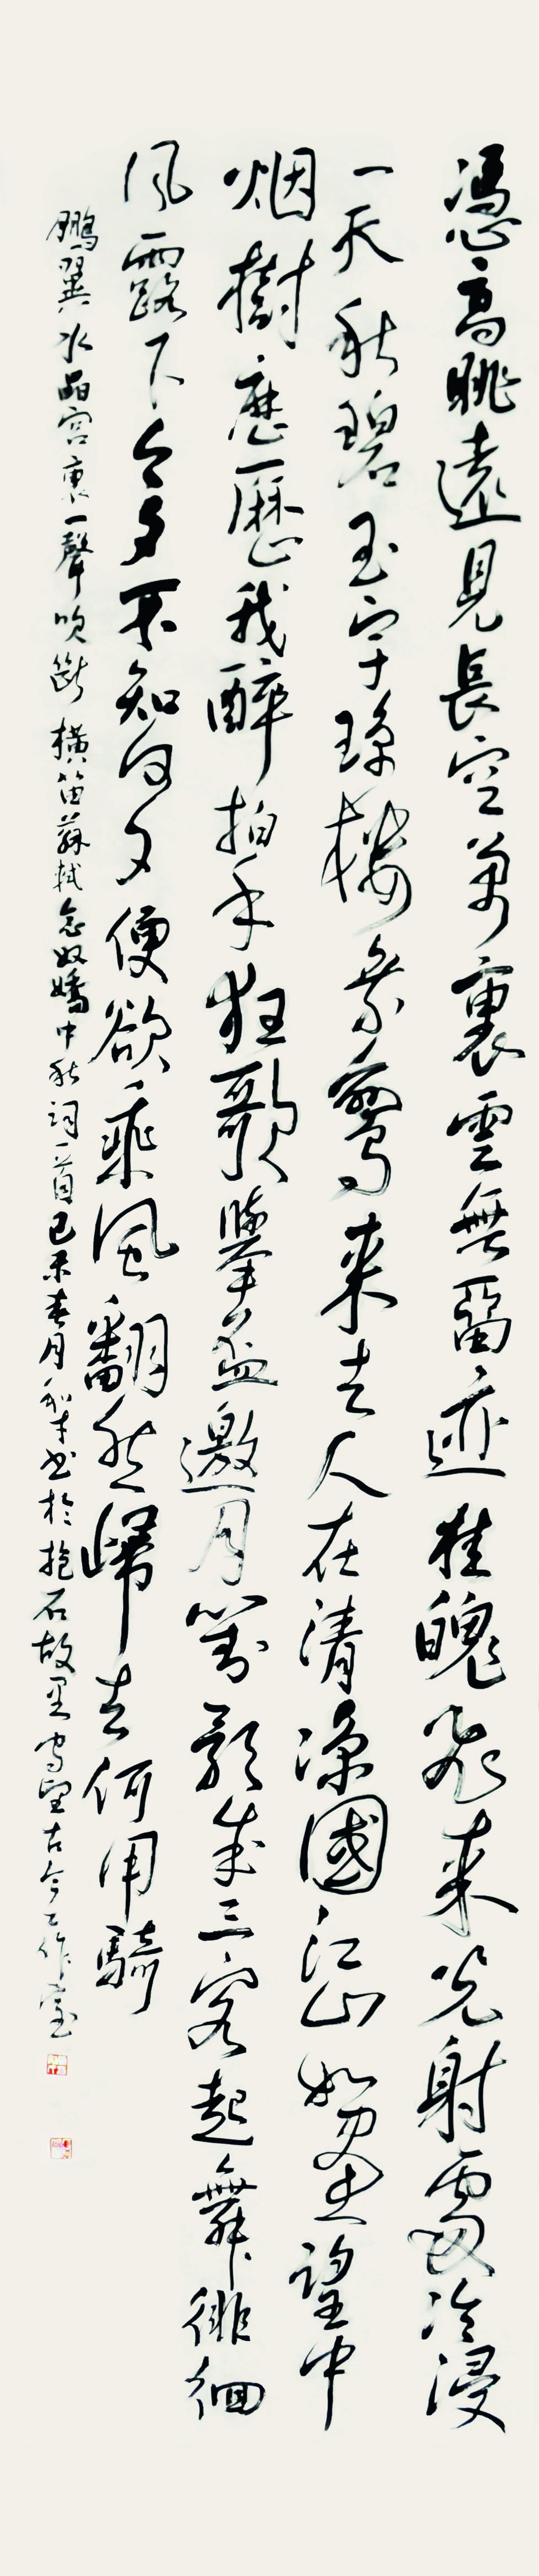 憑高眺遠見長空萬裏雲無留迹桂魄飛来光射處冷浸
一天秋碧玉宇瓊樓乘鸞来去人在清涼國江山如畫望中
烟樹歷歷我醉拍手狂歌舉盃邀月對影成三客起舞徘徊
風露下今夕不知何夕便欲乘風翻然歸去何用騎
鵬翼水晶宮裏一聲吹斷橫笛蘇軾念奴嬌中秋詞一首己未春月書於抱石故里望古今工作室